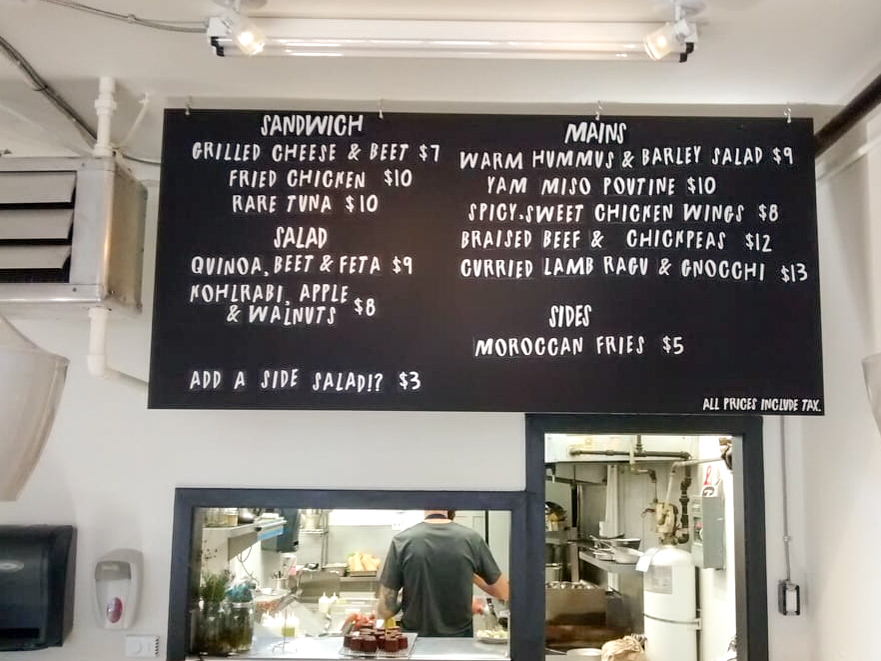 SANDWICH
GRILLED CHEESE & BEET $7
FRIED CHICKEN $10
RARE TUNA $10
SALAD
QUINOA, BEET & FETA $9
KOHLRABI, APPLE
& WALNUTS $8
ADD A SIDE SALAD!? $3
MAINS
WARM HUMMUS & BARLEY SALAD $9
YAM MISO POUTINE $10
SPICY.SWEET CHICKEN WINGS $8
BRAISED BEEF & CHICKPEAS $12
CURRIED LAMB RAGU & GNOCCHI $13
SIDES
MOROCCAN FRIES $5
ALL PRICES INCLUDE TAX.